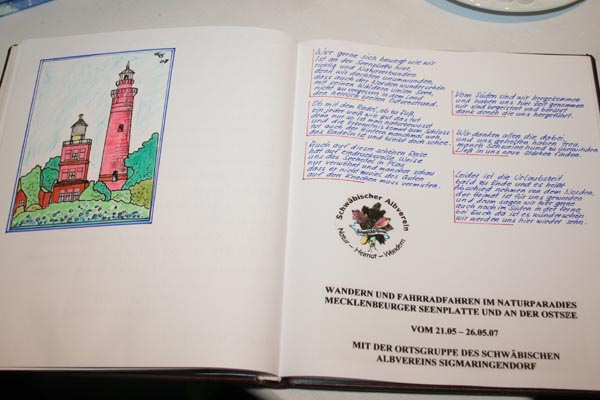 Wer gerne sich bewegt wie wir
ist an der Seenplatte hier,
richtig und Naturverbunden
denn wir dachten unumwunden
dass auch der Norden wunderschön
mit seinen Wäldern und Seen,
nicht zu vergessen unter
den herrlich weiten Ostseestrand.
Ob mit dem Radel, ob zu Fuß,
ein jeder weiß wie gut das tut
denn nur so ist man naturbewusst
und die Erkenntnis kommt zum Schluss
tut auch der Hintern manchmal weh,
das Radeln ist unterm Strich doch schee.
Auch auf dieser schönen Reise
hat auf eindrucksvolle Weise
uns das Seehotel in Plau
nur verwöhnt und mancher schau
dass er nicht
auf den Knochen muss vermuten.
Vom Süden sind wir hergekommen
und haben uns hier Zeit genommen
wir sind begeistert und beeindruckt
dank doch die uns hergeführt.
Wir danken allen die dabei,
und uns geholfen haben treu,
manch Schweinehund zu überwinden
ließ in uns neue Stärke finden.
Leider ist die Urlaubszeit
bald zu Ende und es heißt
Abschied nehmen von dem Norden,
der Heimat ist für uns geworden
und drum sagen wir hier gerne
auch noch im Süden in der Ferne
bei Euch da ist es wunderschön
wir werden uns hier wieder sehn.
Schwäbischer Albverein
Natur – Heimat – Wandern
WANDERN UND FAHRRADFAHREN IM NATURPARADIES
MECKLENBEURGER SEENPLATTE UND AN DER OSTSZE
VOM 21.05 – 26.05.07
MIT DER ORTSGRUPPE DES SCHWÄBISCHEN
ALBVEREINS SIGMARINGENDORF